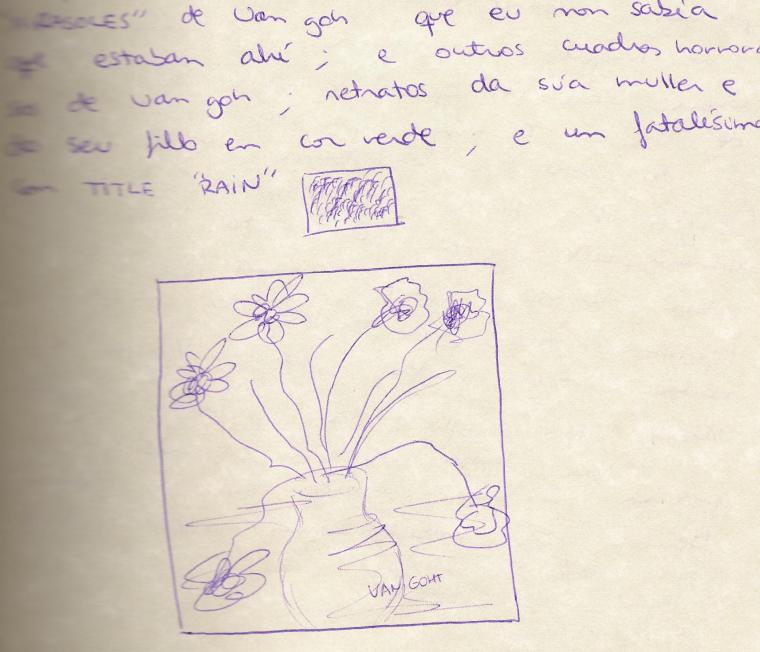 "XIRASOLES" de Van goh que eu non sabía
que estaban ahí ; e outros cuadros horroro
so de Van goh ; retratos da súa muller e
do seu fillo en cor verde ; e un fatalísimo
con TITLE "RAIN"
VAN GOHT